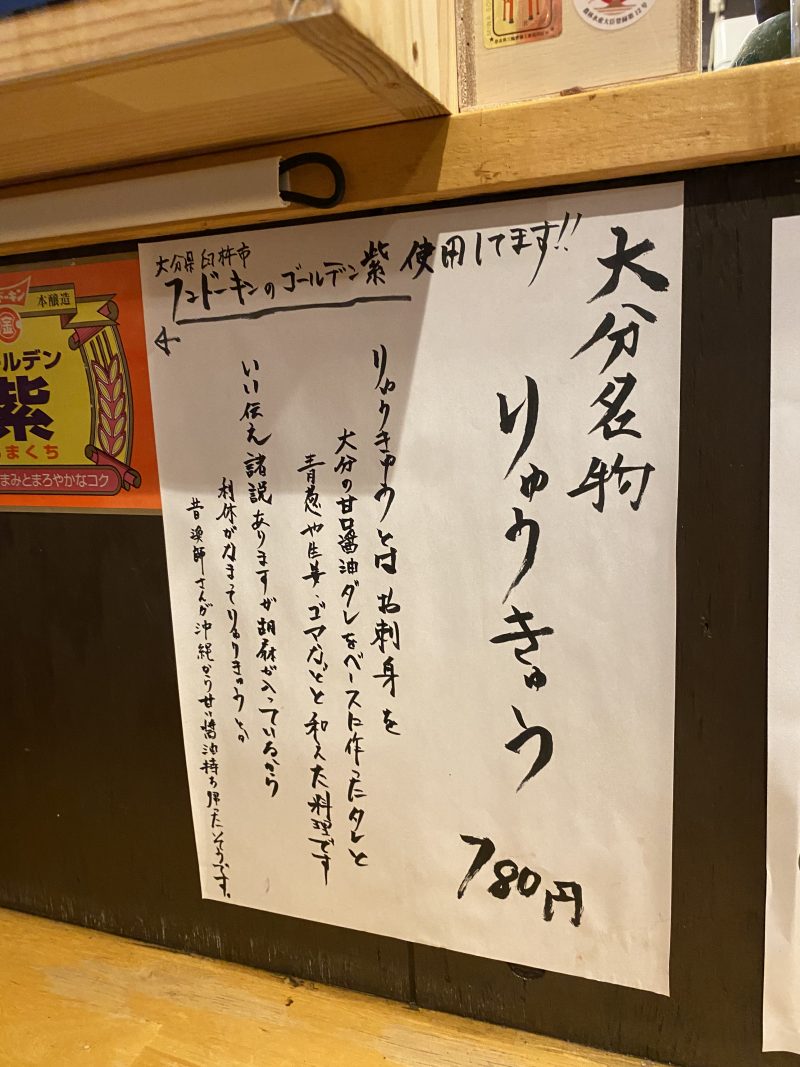 大分名物
りゅうきゅう
780円
大分県臼杵市
フンドーキンのゴールデン紫 使用してます!!
りゅうきゅうとはお刺身を
大分の甘口醤油ダレをベースに作ったタレと
青葱や生姜、ゴマなどと和えた料理です
いい伝え諸説ありますが胡麻が入っているから
利休がなまってりゅうきゅうとか
昔漁師さんが沖縄から甘い醤油持ち帰ったそうです。
本醸造
金
ールデン
紫
まくち
まみとまろやかなコク